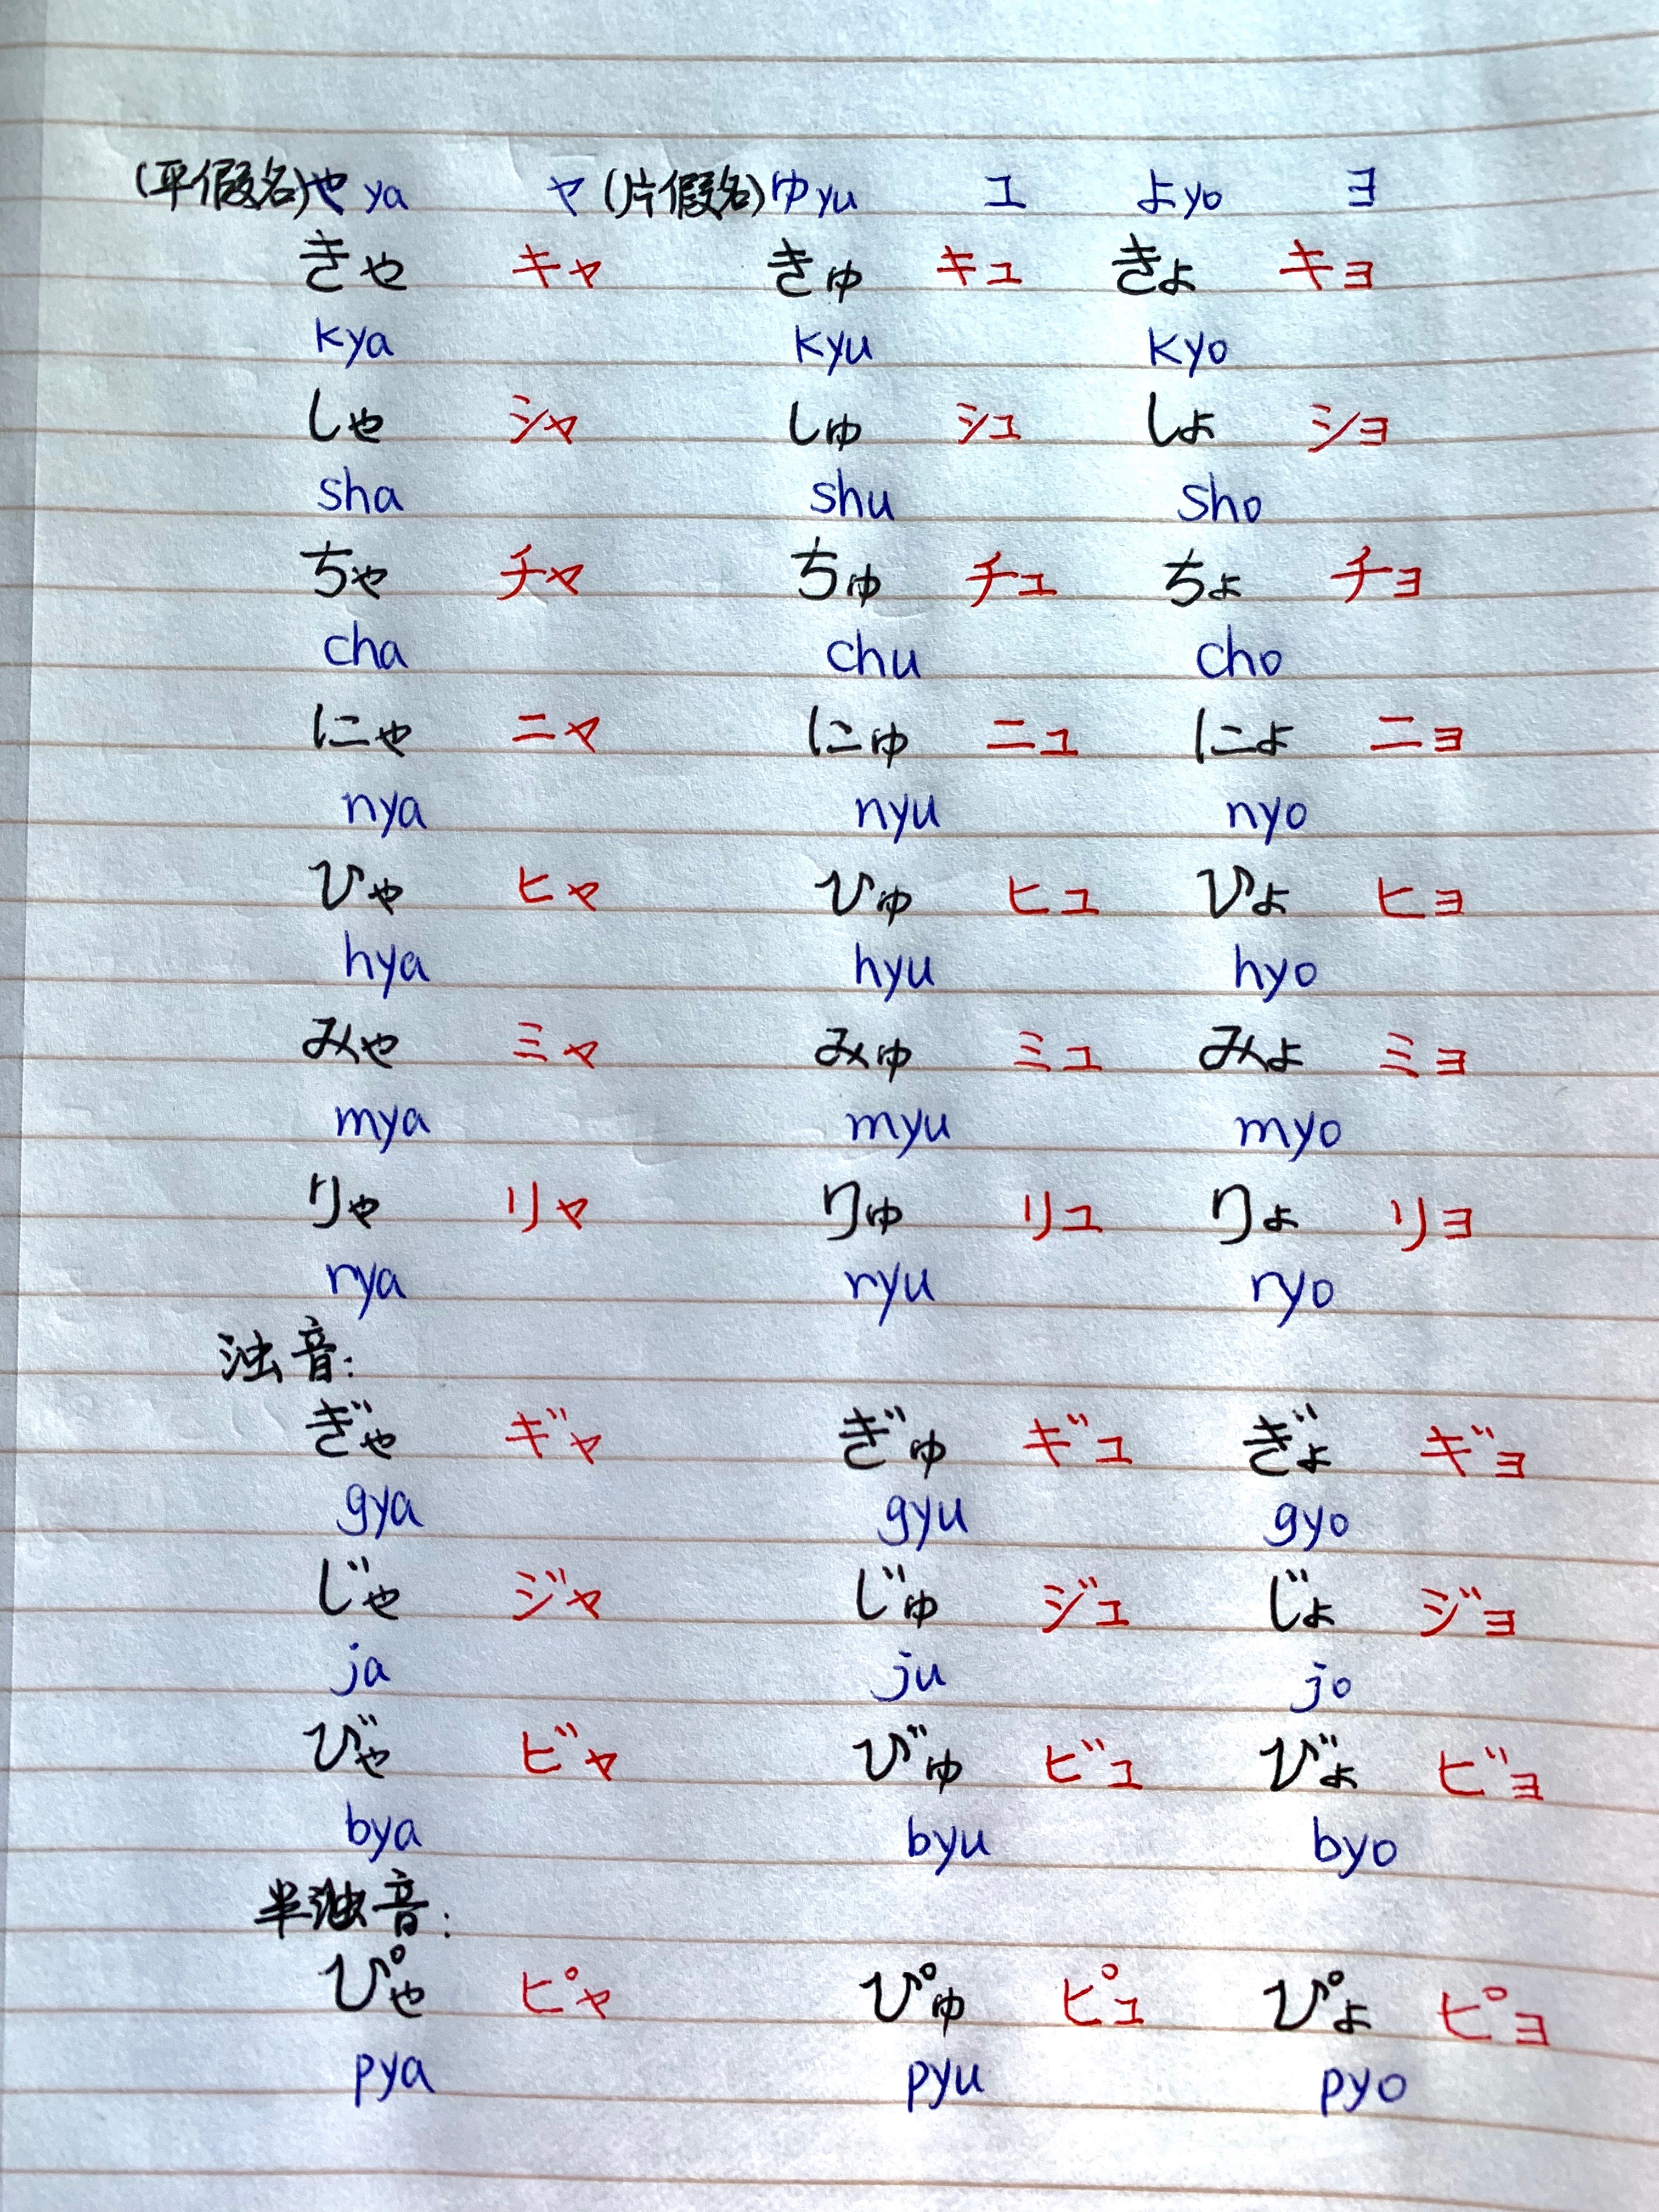 (平假名)や ya ヤ(片假名)ゆyu ユ よyo ヨ
きゃ キャ きゅ キュ きょ キョ
kya kyu kyo
しゃ シャ しゅ シュ しょ ショ
sha shu sho
ちゃ チャ ちゅ チュ ちょ チョ
cha chu cho
にゃ ニャ にゅ ニュ にょ ニョ
nya nyu nyo
ひゃ ヒャ ひゅ ヒュ ひょ ヒョ
hya hyu hyo
みゃ ミャ みゅ ミュ みょ ミョ
mya myu myo
りゃ リャ りゅ リュ りょ リョ
rya ryu ryo
浊音:
ぎゃ ギャ ぎゅ ギュ ぎょ ギョ
gya gyu gyo
じゃ ジャ じゅ ジュ じょ ジョ
ja ju jo
びゃ ビャ びゅ ビュ びょ ビョ
bya byu byo
半浊音:
ぴゃ ピャ ぴゅ ピュ ぴょ ピョ
pya pyu pyo